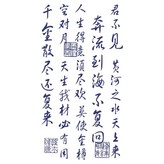 君不见黄河之水天上来
奔流到海不复回
人生得意须尽欢莫使金樽
空对月天生我材必有用
千金散尽还复来